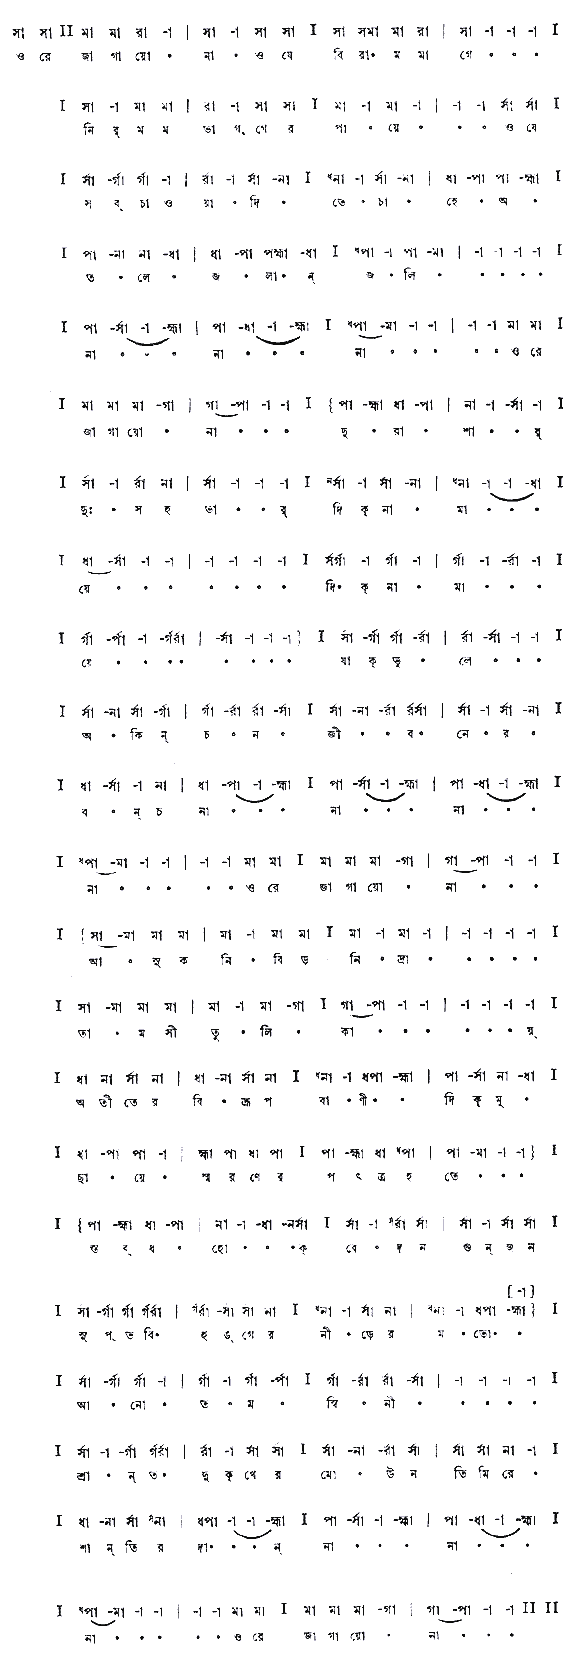 সা সা II মা মা রা -া | সা -া সা সা I সা সমা মা রা | সা -া -া -া I
ও রে জা গা য়ো • না • ও যে বি রা• ম মা গে • • •
I সা -া মা মা | রা -া সা সা I মা -া মা -া | -া -া র্সা র্সা I
নি র্ ম ম ভা গ্ গে র পা • য়ে • • • ও যে
I র্সা -র্গা র্গা -া | র্রা -া র্সা -না I ধনা -া র্সা -না | ধা -পা পা -হ্মা I
স ব্ চা ও য়া • দি • তে • চা • হে • অ •
I পা -না না -ধা | ধা -পা পহ্মা -ধা I ধপা -া পা -মা | -া -া -া -া I
ত • লে • জ • লা• ন্ জ • লি • • • • •
I পা -র্সা -া -হ্মা | পা -ধা -া -হ্মা I ধপা -মা -া -া | -া -া মা মা I
না • • • না • • • না • • • • • ও রে
I মা মা মা -গা | গা -পা -া -া I {পা -হ্মা ধা -পা | না -া -র্সা -া I
জা গা য়ো • না • • • দু • রা • শা • • র্
I র্সা -া র্রা না | র্সা -া -া -া I নর্সা -া র্সা -না | ধনা -া -া -ধা I
দুঃ • স হ ভা • • র্ দি ক্ না • মা • • •
I ধা -র্সা -া -া | -া -া -া -া I র্সর্গা -া র্গা -া | র্গা -া -র্রা -া I
য়ে • • • • • • • দি• ক্ না • মা • • •
I র্গা -র্পা -া -র্গর্রা | -র্সা -া -া -া} I র্সা -র্গা র্গা -র্রা | র্রা -র্সা -া -া I
য়ে • • •• • • • • যা ক্ ভু • লে • • •
I র্সা -না র্সা -র্গা | র্গা -র্রা র্রা -র্সা I র্সা -না -র্রা র্রর্সা | র্সা -া র্সা -না I
অ • কি ন্ চ • ন • জী • • ব• নে • র •
I ধা -র্সা -া না | ধা -পা -া -হ্মা I পা -র্সা -া -হ্মা | পা -ধা -া -হ্মা I
ব • ন্ চ না • • • না • • • না • • •
I ধপা -মা -া -া | -া -া মা মা I মা মা মা -গা | গা -পা -া -া I
না • • • • • ও রে জা গা য়ো • না • • •
I {সা -মা মা মা | মা -া মা মা I মা -া মা -া | -া -া -া -া I
আ • সু ক নি • বি ড় নি • দ্রা • • • • •
I সা -মা মা মা | মা -া মা -গা I গা -পা -া -া | -া -া -া -া I
তা • ম সী তু • লি • কা • • • • • • য়্
I ধা না র্সা না | ধা -না র্সা না I ধনা -া ধপা -হ্মা | পা -র্সা না -ধা I
অ তী তে র বি • দ্রূ প বা • ণী• • দি ক্ মু •
I ধা -পা পা -া | হ্মা পা ধা পা I পা -হ্মা ধা ধপা | পা -মা -া -া} I
ছা • য়ে • স্ম র ণে র প ৎ ত্র হ তে • • •
I {পা -হ্মা ধা -পা | না -া -ধা -নর্সা I র্সা -া র্রা র্সা | র্সা -া র্সা র্সা I
স্ত ব্ ধ • হো • • •ক্ বে • দ ন গু ন্ জ ন
[-া]
I র্সা -র্গা র্গা র্গর্রা | র্রা -র্সা র্সা না I ধনা -া র্সা না | ধনা -া ধপা -হ্মা} I
সু প্ ত বি• হ ঙ্ গে র নী • ড়ে র ম • তো• •
I র্সা -র্গা র্গা -া | র্গা -া র্গা -র্পা I র্গা -র্রা র্রা -র্সা | -া -া -া -া I
আ • নো • ত • ম • স্বি • নী • • • • •
I র্সা -া -র্গা র্গর্রা | র্রা -া র্সা র্সা I র্সা -না -র্রা র্সা | র্সা র্সা না -া I
শ্রা • ন্ ত• দু ক্ খে র মৌ • • ন তি মি রে •
I ধা -না র্সা না | ধপা -া -া -হ্মা I পা -র্সা -া -হ্মা | পা -ধা -া -হ্মা I
শা ন্ তি র দা• • • ন্ না • • • না • • •
I ধপা -মা -া -া | -া -া মা মা I মা মা মা -গা | গা -পা -া -া II II
না • • • • • ও রে জা গা য়ো • না • • •